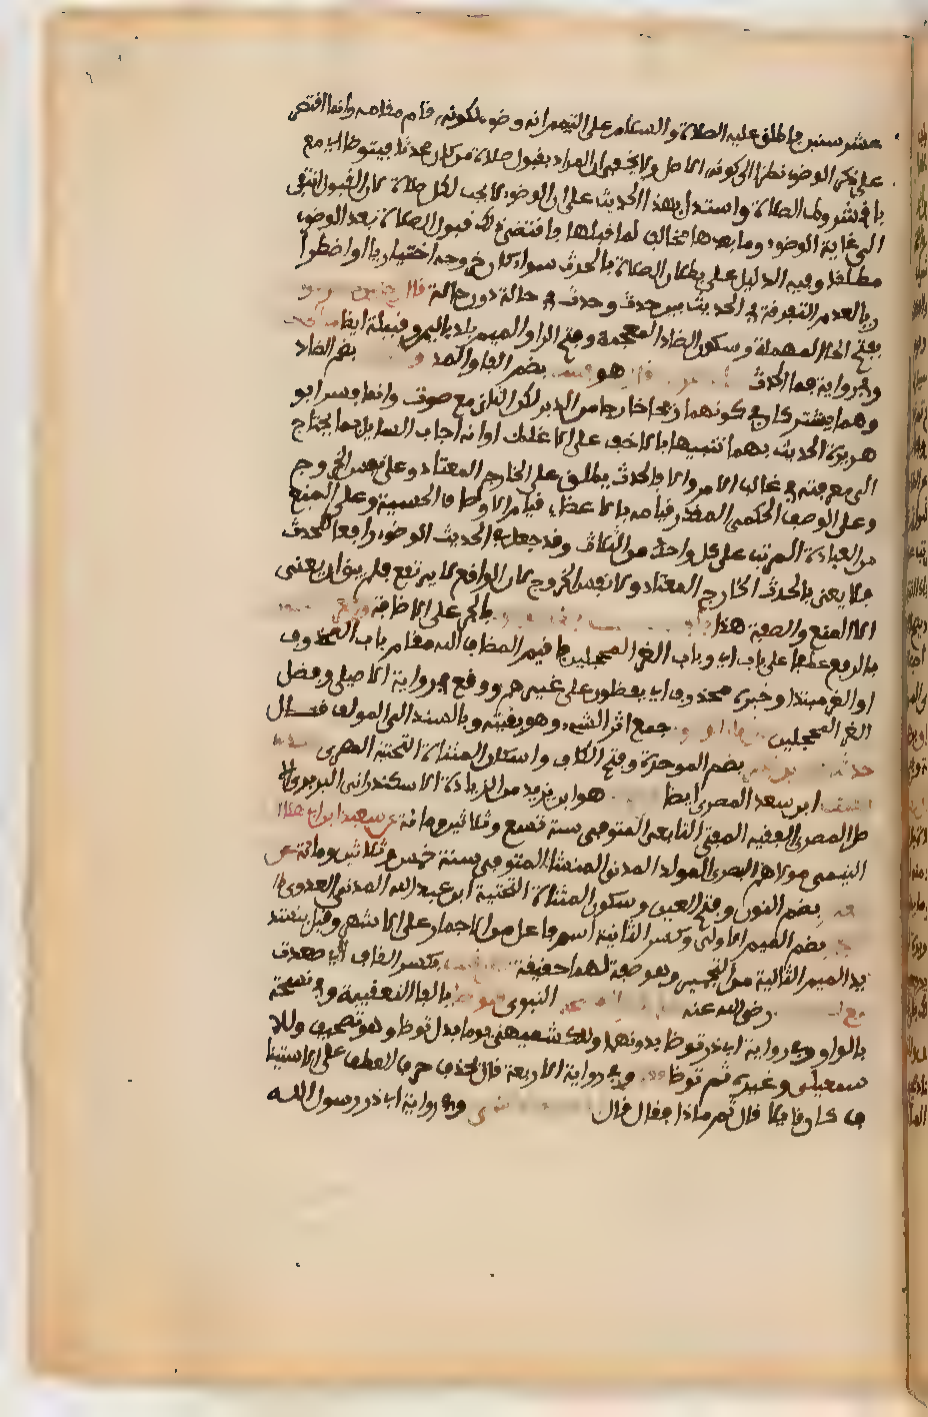 عشر سنين فاطلق عليه الصلاة والسلام على التيمم انه وضوء لكونه قام مقامه وانما اقتصر
على ذكر الوضوء نظرا الى كونه الاصل ولا يخفى ان المراد بقبول صلاة من كان محدثا فيتوضا اي مع
باقي شروط الصلاة واستدل بهذا الحديث على ان الوضوء لا يجب لكل صلاة لان القبول انتفى
الى غاية الوضوء وما بعدها مخالف لما قبلها فاقتضى ذلك قبول الصلاة بعد الوضوء
مطلقا وفيه الدليل على بطلان الصلاة بالحدث سواء كان خروجه اختياريا او اضطراريا
لعدم التفرقة في الحديث بين حدث وحدث في حالة دون حالة قال رجل من
بفتح الحاء المهملة وسكون الضاد المعجمة وفتح الراء والميم بلد باليمن وقبيلة ايضا
وفي رواية فما الحدث هو بضم الفاء والمد و بضم الضاد
وهما يشتركان في كونهما ريحا خارجا من الدبر لكن الثاني مع صوت وانما فسر ابو
هريرة الحديث بهما تنبيها بالاخف على الاغلظ او انه اجاب السايل بما يحتاج
الى معرفته في غالب الامر والا فالحدث يطلق على الخارج المعتاد وعلى نفس الخروج
وعلى الوصف الحكمي المقدر قيامه بالاعضاء قيام الاوصاف الحسية وعلى المنع
من العبادة المرتب على كل واحد من الثلاث وقد جعل في الحديث الوضوء رافعا للحدث
فلا يعني بالحدث الخارج المعتاد ولا نفس الخروج لان الواقع لا يرتفع فلم يبق ان يعنى
الا المنع والصفة هذا بالجر على الاضافة
بالرفع عطفا على باب اي وباب الغر المحجلين فاقيم المضاف اليه مقام باب المحذوف
او الغر مبتدا وخبره محذوف اي يفضلون على غيرهم ووقع في رواية الاصيلي وفضل
الغر المحجلين جمع اثر الشيء وهو بقيته وبالسند الى المولف قال
حدثنا بضم الموحدة وفتح الكاف واسكان المثناة التحتية المصري
ابن سعد المصري ايضا هو ابن يزيد من الزيادة الاسكندراني البربري
الاصل المصري الفقيه المفتي التابعي المتوفى سنة تسع وثلاثين ومائة عن سعيد ابن ابي هلال
الليثي مولاهم البصري المولد المدني المنشا المتوفى سنة خمس وثلاثين ومائة عن
بضم النون وفتح العين وسكون المثناة التحتية ابن عبد الله المدني العدوي
بضم الميم الاولى وكسر الثانية اسم فاعل من الاجمار على الاشهر وقيل بتشد
يد الميم الثانية من التجمير وهو صفة لهما حقيقة بكسر القاف اي صعدت
مع رضي الله عنه النبوي فتوضا بالفاء التعقيبية وفي نسخة
بالواو وفي رواية ابي ذر توضا بدونهما وللكشميهني يوما بدل توضا وهو تصحيف وللا
سمعيلي وغيره ثم توضا وفي رواية الاربعة قال بحذف حرف العطف على الاستينا
ف كان قايلا قال ثم ماذا فقال قال وفي رواية ابي ذر رسول الله